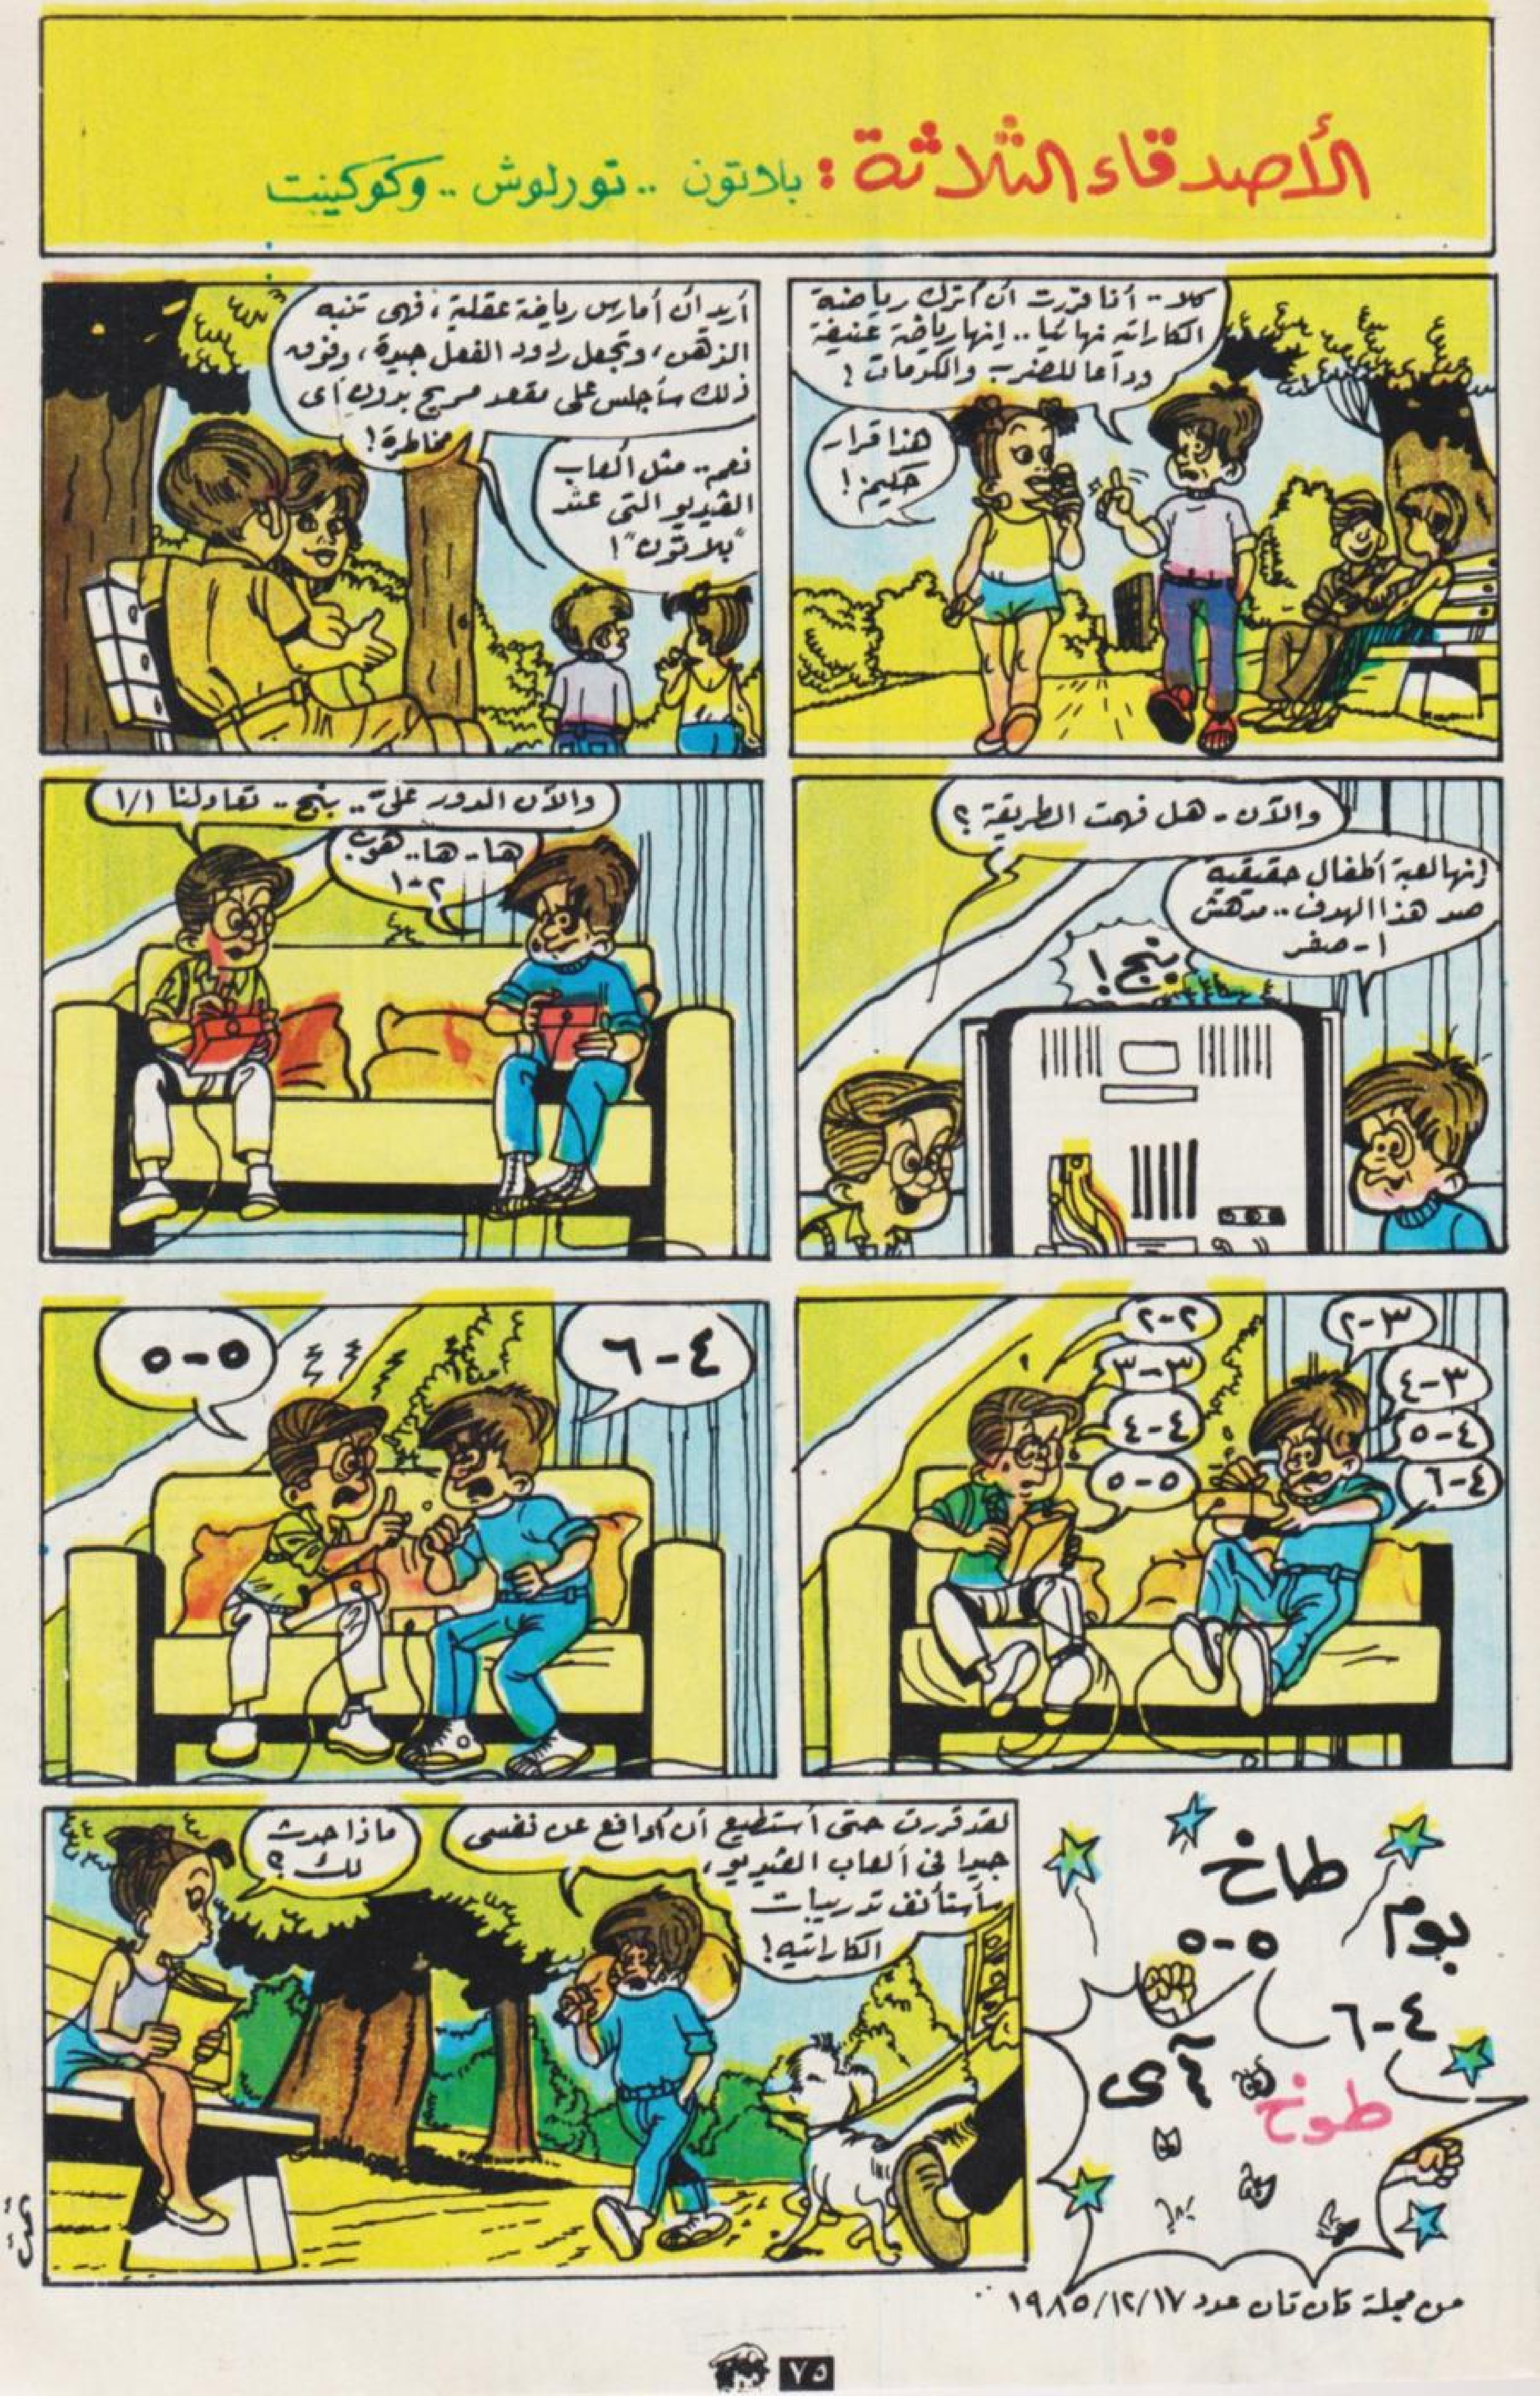 الأصدقاء الثلاثة : بلاتون .. تورلوش .. وكوكينت
كلا .. أنا قررت أن أترك رياضة
الكاراتيه نهائيا .. إنها رياضة عنيفة
وداعا للضرب والكدمات !
هذا قرار
حكيم !
أريد أن أمارس رياضة عقلية ، فهى تنبه
الذهن ، وتجعل ردود الفعل جيدة ، وفوق
ذلك سأجلس على مقعد مريح بدون أى
مخاطرة !
نعم .. مثل ألعاب
الڤيديو التى عند
"بلاتون" !
والآن - هل فهمت الطريقة ؟
إنها لعبة أطفال حقيقية
صد هذا الهدف .. مدهش
١ - صفر
بنج !
والآن الدور علىّ .. بنج .. تعادلنا ١/١
ها - ها .. هوب
٢-١
٣-٢
٢-٢
٣-٤
٣-٣
٤-٥
٤-٤
٤-٦
٥-٥
٤-٦
٥-٥
طاخ
بوم
٥-٥
٤-٦
آى
طوخ
لقد قررت حتى أستطيع أن أدافع عن نفسى
جيدا فى ألعاب الڤيديو ،
سأستأنف تدريبات
الكاراتيه !
ماذا حدث
لك ؟
تمت
من مجلة تان تان عدد ١٩٨٥/١٢/١٧
٧٥